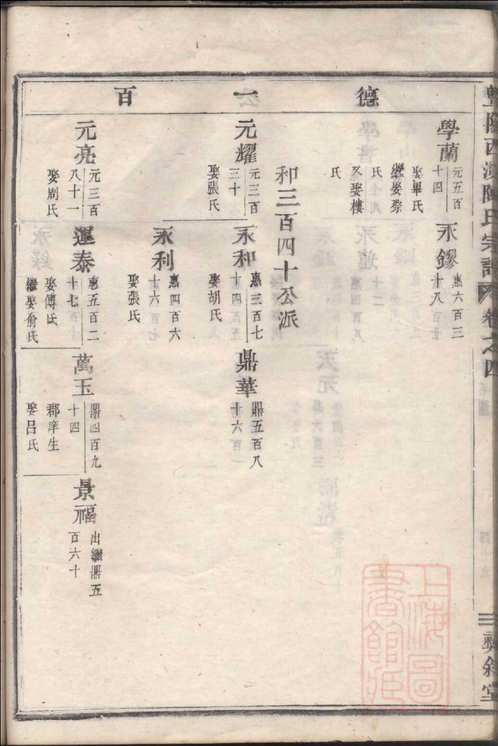 豐隂西溪陳氏宗譜
卷之四
三
彝敘堂
德一百
學蘭
元五百
十四
娶畢氏
繼娶蔡
氏
又娶樓
氏
永鏐
惠六百三
十八
和三百四十公派
元耀
元三百
三十
娶張氏
永和
惠三百七
十六
娶胡氏
鼎華
鼎五百八
十六
永利
惠四百六
十六
娶張氏
元亮
元三百
八十一
娶周氏
運泰
惠五百二
十七
娶傅氏
繼娶俞氏
萬玉
鼎四百九
十四
郡庠生
娶呂氏
景福
出繼鼎五
百六十
上海圖書館藏